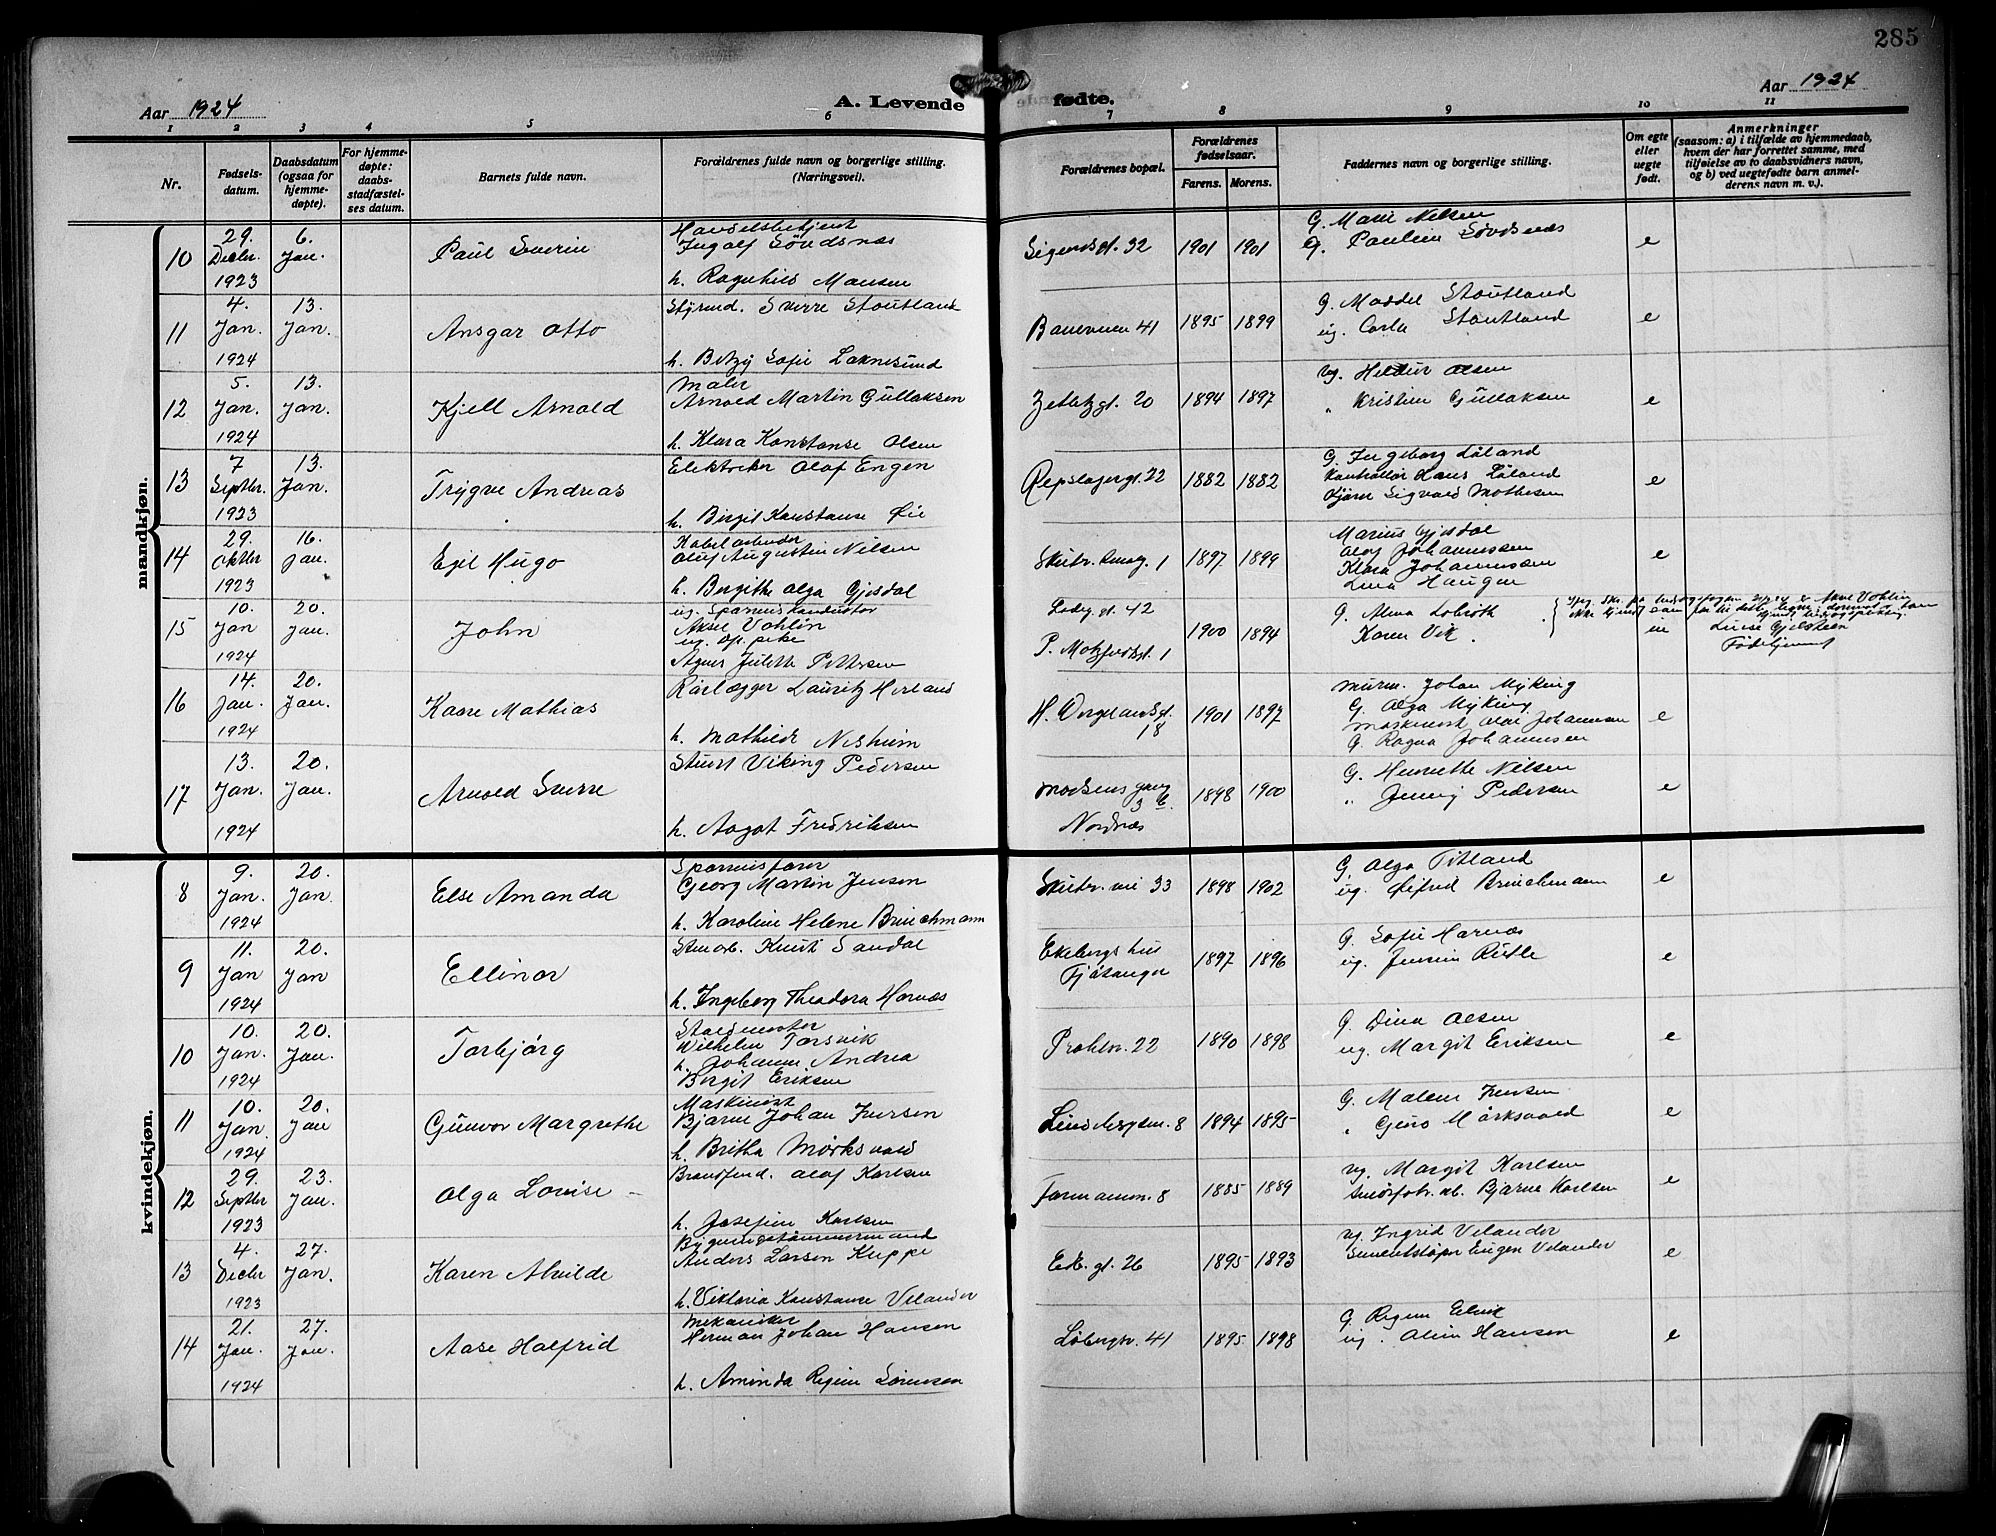 285
Aar 1924
A. Levende
fødte.
Aar 1924
1 2 3 4 5 6 7 8 9 10 11
Nr.
Fødsels-
datum.
Daabsdatum
(ogsaa for
hjemme-
døpte).
For hjemme-
døpte:
daabs-
stadfæstel-
ses datum.
Barnets fulde navn.
Forældrenes fulde navn og borgerlige stilling.
(Næringsvei).
Forældrenes bopæl.
Forældrenes
fødselsaar.
Farens. Morens.
Faddernes navn og borgerlige stilling.
Om egte
eller
uegte
født.
Anmerkninger
(saasom: a) i tilfælde av hjemmedaab,
hvem der har forrettet samme, med
tilføielse av to daabsvidners navn,
og b) ved uegtefødte barn anmel-
derens navn m. v.).
mandkjøn.
10
29. Decbr. 1923
6. Jan.
Paul Severin
Handelsbetjent
Ingolf Søvdsnæs
h. Ragnhild Monsen
32
1901 1901
G. Marie Nilsen
G. Pauline Søvdsnæs
e
11
4. Jan. 1924
13. Jan.
Ansgar Otto
Styrmd. Sverre Stoutland
h. Betzy Sofie Laknesund
41
1895 1899
G. Maddel Stoutland
ug. Carla Stoutland
e
12
5. Jan. 1924
13. Jan.
Kjell Arnold
Maler
Arnold Martin Gullaksen
h. Klara Konstanse Olsen
Zetlitzgt. 20
1894 1897
ug. Olsen
" Kristine Gullaksen
e
13
7 Septbr. 1923
13. Jan.
Trygve Andreas
Elektriker Olaf Engen
h. Birgit Konstanse Øie
Repslagergt. 22
1882 1882
G. Ingeborg Løland
Kontrollør Løland
Sigvald Mothesen
e
14
29. Oktbr 1923
16. Jan.
Egil Hugo
Kabelarbeider
Oluf Augustin Nilsen
h. Bergithe Olga Gjesdal
1
1897 1899
Marius Gjesdal
Olaf Johannessen
Klara Johannessen
Lina Haugen
e
15
10. Jan 1924
20. Jan.
John
ug. Sporveiskonduktør
Aksel Vohlin
ug. op. pike
Agnes Judith Pettersen
42
P. Motzfeldtgt. 1
1900 1894
G. Alma
Karen Vik.
ue
16
14. Jan. 1924
20. Jan.
Kaare Mathias
Rørlægger Lauritz Herland
h. Mathilde Nesheim
18
1901 1897
Murm. Johan Myking
G. Olga Myking
Maskinist Olai Johannsen
G. Ragna Johannsen
e
17
13. Jan. 1924
20. Jan.
Arnold Sverre
Stuert Viking Pedersen
h. Aagot Fredriksen
3
Nordnæs
1898 1900
G. Henriette Nilsen
" Jenny Pedersen
e
kvindekjøn.
8
9. Jan. 1924
20. Jan.
Else Amanda
Sporveisfører
Georg Martin Jensen
h. Karoline Helene Brinchmann
33
1898 1902
G. Olga Titland
ug. Brinchmann
e
9
11. Jan 1924
20. Jan
Ellinor
Stenarb. Knut Sandal
h. Ingeborg Theodora Hornæs
Ekebergs hus
Fjøsanger
1897 1896
G. Sofie Hornæs
ug. Jensine Rutle
e
10
10. Jan. 1924
20. Jan.
Torbjørg
Wilhelm Torsvik
h. Johanne Andrea
Birgit Eriksen
22
1890 1898
G. Dina Olsen
ug. Margit Eriksen
e
11
10. Jan. 1924
20. Jan
Gunvor Margrethe
Maskinist
Bjarne Johan Iversen
h. Britha Mørksvold
8
1894 1895
G. Malene Iversen
" Mørksvold
e
12
29. Septbr 1923
23. Jan.
Olga Lovise
Brandfmd. Olaf Karlsen
h. Josefine Karlsen
8
1885 1889
ug. Margit Karlsen
Bjarne Karlsen
e
13
4. Decbr 1923
27. Jan.
Karen Alvilde
Bygningstømmermand
Anders Larsen Kleppe
h. Viktoria Konstanse Velander
26
1895 1893
ug. Ingrid Velander
Sementstøper Eugen Velander
e
14
21. Jan. 1924
27. Jan.
Aase Halfrid
Mekaniker
Herman Johan Hansen
h. Aminda Regine Sørensen
41
1895 1898
G. Regine
ug. Hansen
e